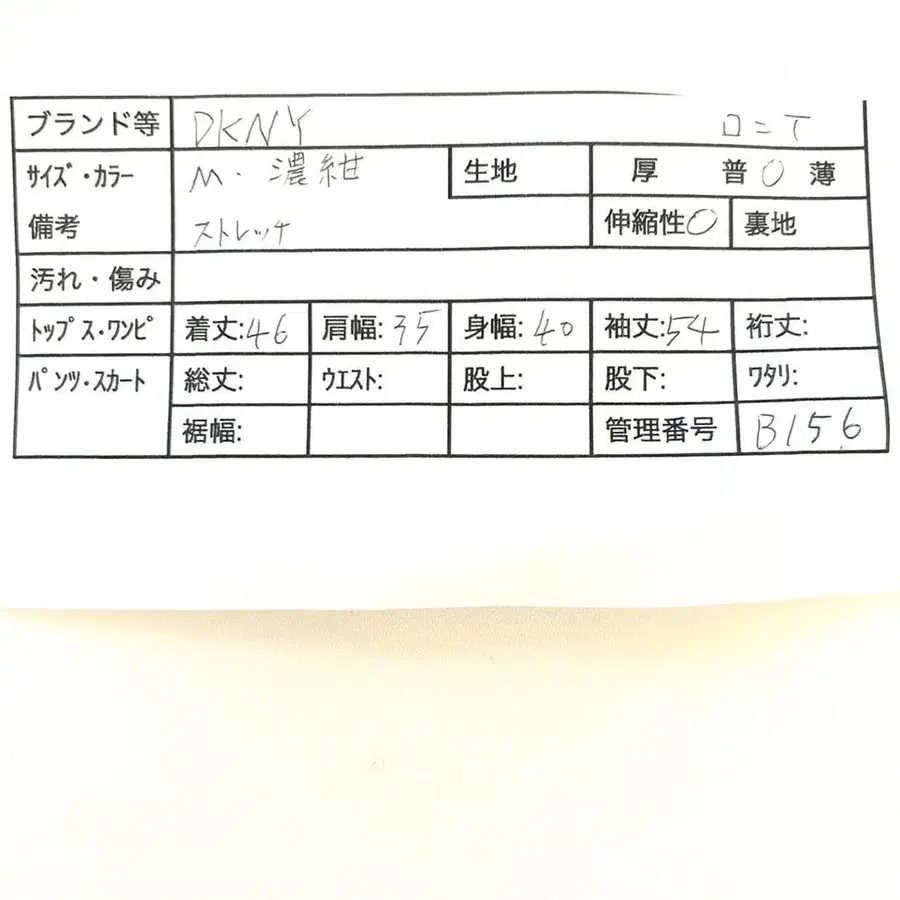 ブランド等 DKNY ロンT
サイズ・カラー M・濃紺 生地 厚 普〇 薄
備考 ストレッチ 伸縮性〇 裏地
汚れ・傷み
トップス・ワンピ 着丈:46 肩幅:35 身幅:40 袖丈:54 裄丈:
パンツ・スカート 総丈: ウエスト: 股上: 股下: ワタリ:
裾幅: 管理番号 B156